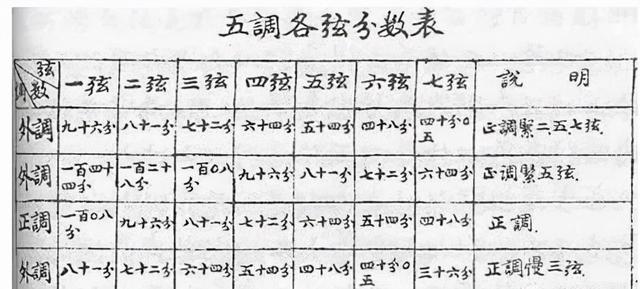 五調各弦分數表
弦 數 調 一弦 二弦 三弦 四弦 五弦 六弦 七弦 說 明
外調 九十六分 八十一分 七十二分 六十四分 五十四分 四十八分 四十分0五 正調緊二五七弦.
外調 一百四十四分 一百二十八分 一百0八分 九十六分 八十一分 七十二分 六十四分 正調緊五弦.
正調 一百0八分 九十六分 八十一分 七十二分 六十四分 五十四分 四十八分 正調.
外調 八十一分 七十二分 六十四分 五十四分 四十八分 四十分0五 三十六分 正調慢三弦.